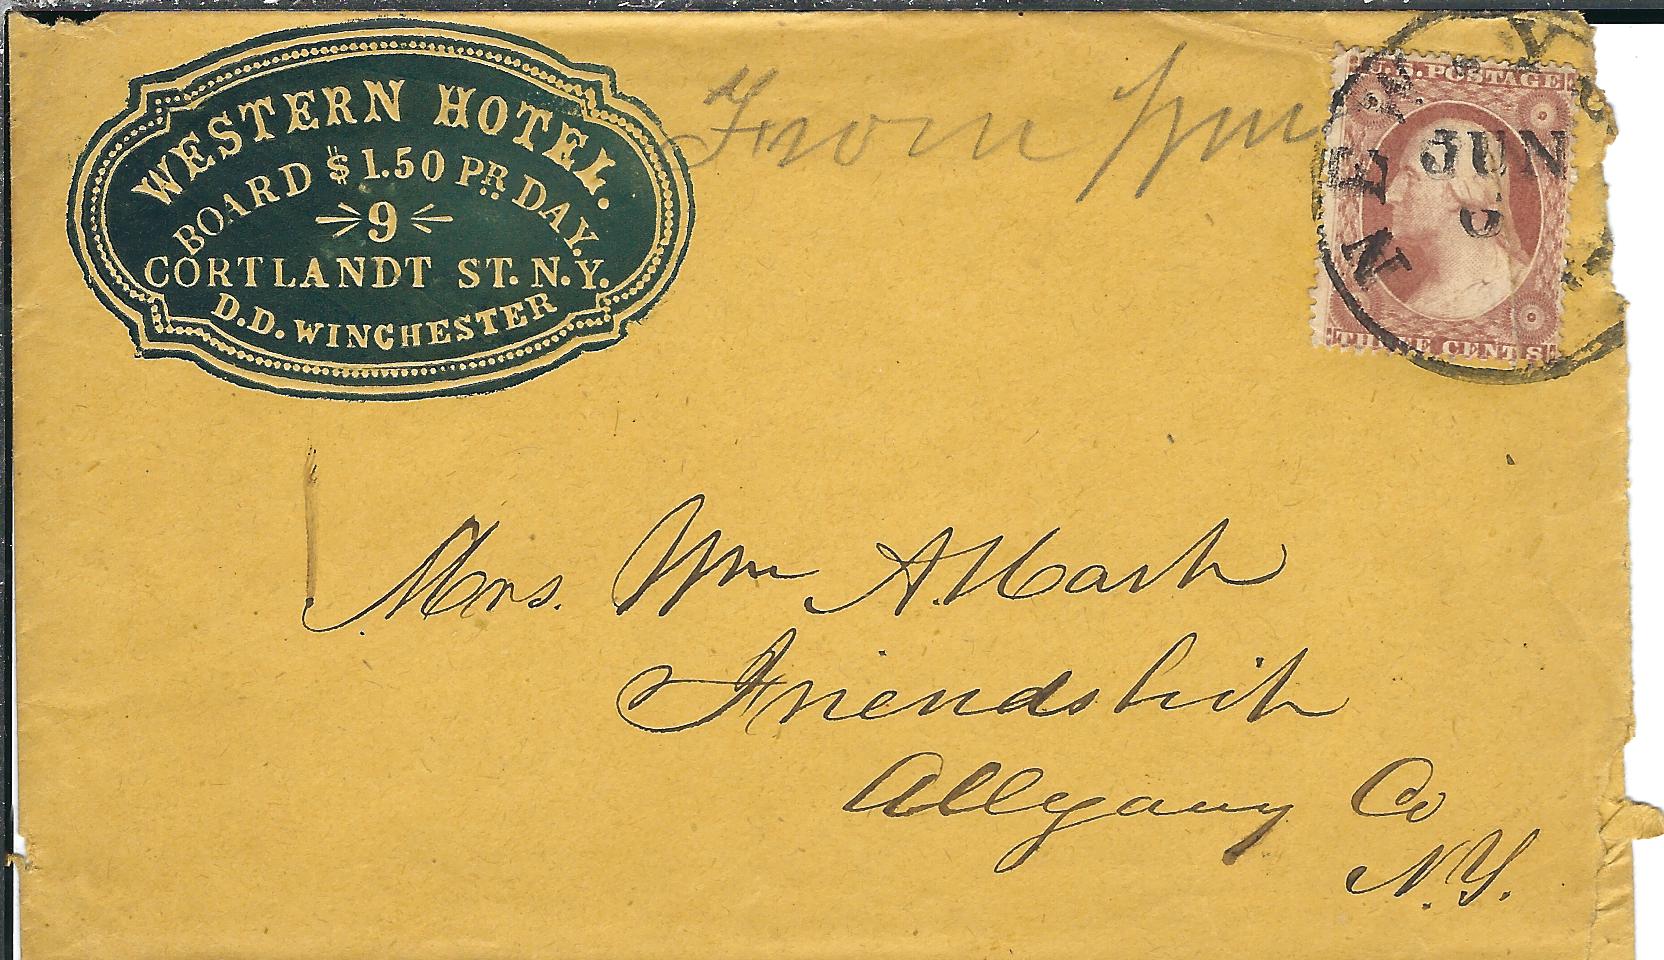 WESTERN HOTEL.
BOARD $1.50 PR. DAY.
9
CORTLANDT ST. N.Y.
D.D. WINCHESTER
From Wm
U.S. POSTAGE
THREE CENTS
NEW
JUN
Mrs. Wm A.
Friendship
Allegany Co
N.Y.